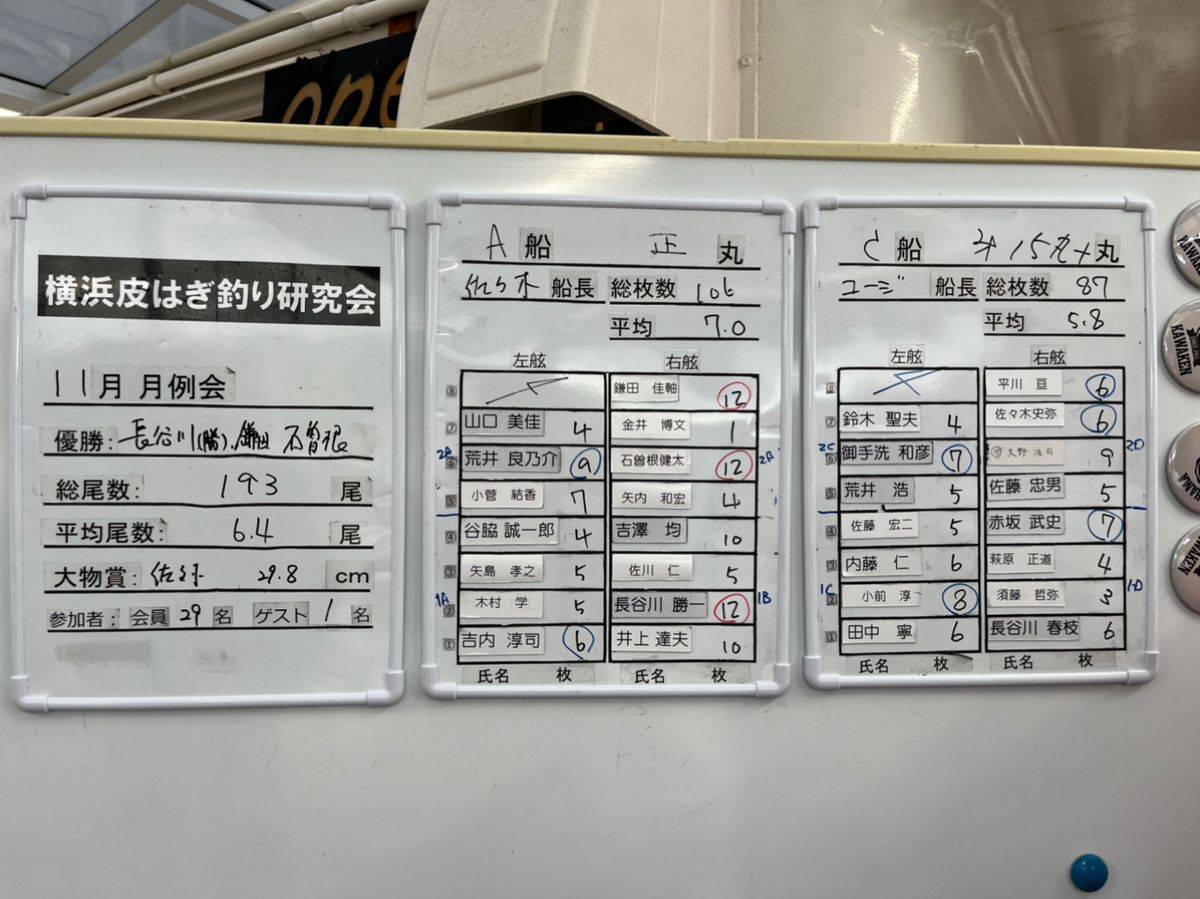 横浜皮はぎ釣り研究会
11月 月例会
優勝: 長谷川(勝)、鎌田 石曽根
総尾数: 193 尾
平均尾数: 6.4 尾
大物賞: 29.8 cm
参加者: 会員 29 名 ゲスト 1 名
A 船 正 丸
佐々木 船長 総枚数 106
平均 7.0
左舷 右舷
⑧ 鎌田 佳軸 12
⑦ 山口 美佳 4 金井 博文 1
2A ⑥ 荒井 良乃介 9 石曽根健太 12
⑤ 小菅 結香 7 矢内 和宏 4
④ 谷脇 誠一郎 4 吉澤 均 10
③ 矢島 孝之 5 佐川 仁 5
1A ② 木村 学 5 長谷川 勝一 12 1B
① 吉内 淳司 6 井上 達夫 10
氏名 枚 氏名 枚
船 丸
ユージ 船長 総枚数 87
平均 5.8
左舷 右舷
⑧ 平川 亘 6
⑦ 鈴木 聖夫 4 佐々木史弥 6
2C ⑥ 御手洗 和彦 7 9 2D
⑤ 荒井 浩 5 佐藤 忠男 5
④ 佐藤 宏二 5 赤坂 武史 7
③ 内藤 仁 6 萩原 正道 4
1C ② 小前 淳 8 須藤 哲弥 3 1D
① 田中 寧 6 長谷川 春枝 6
氏名 枚 氏名 枚
KAWAKEN